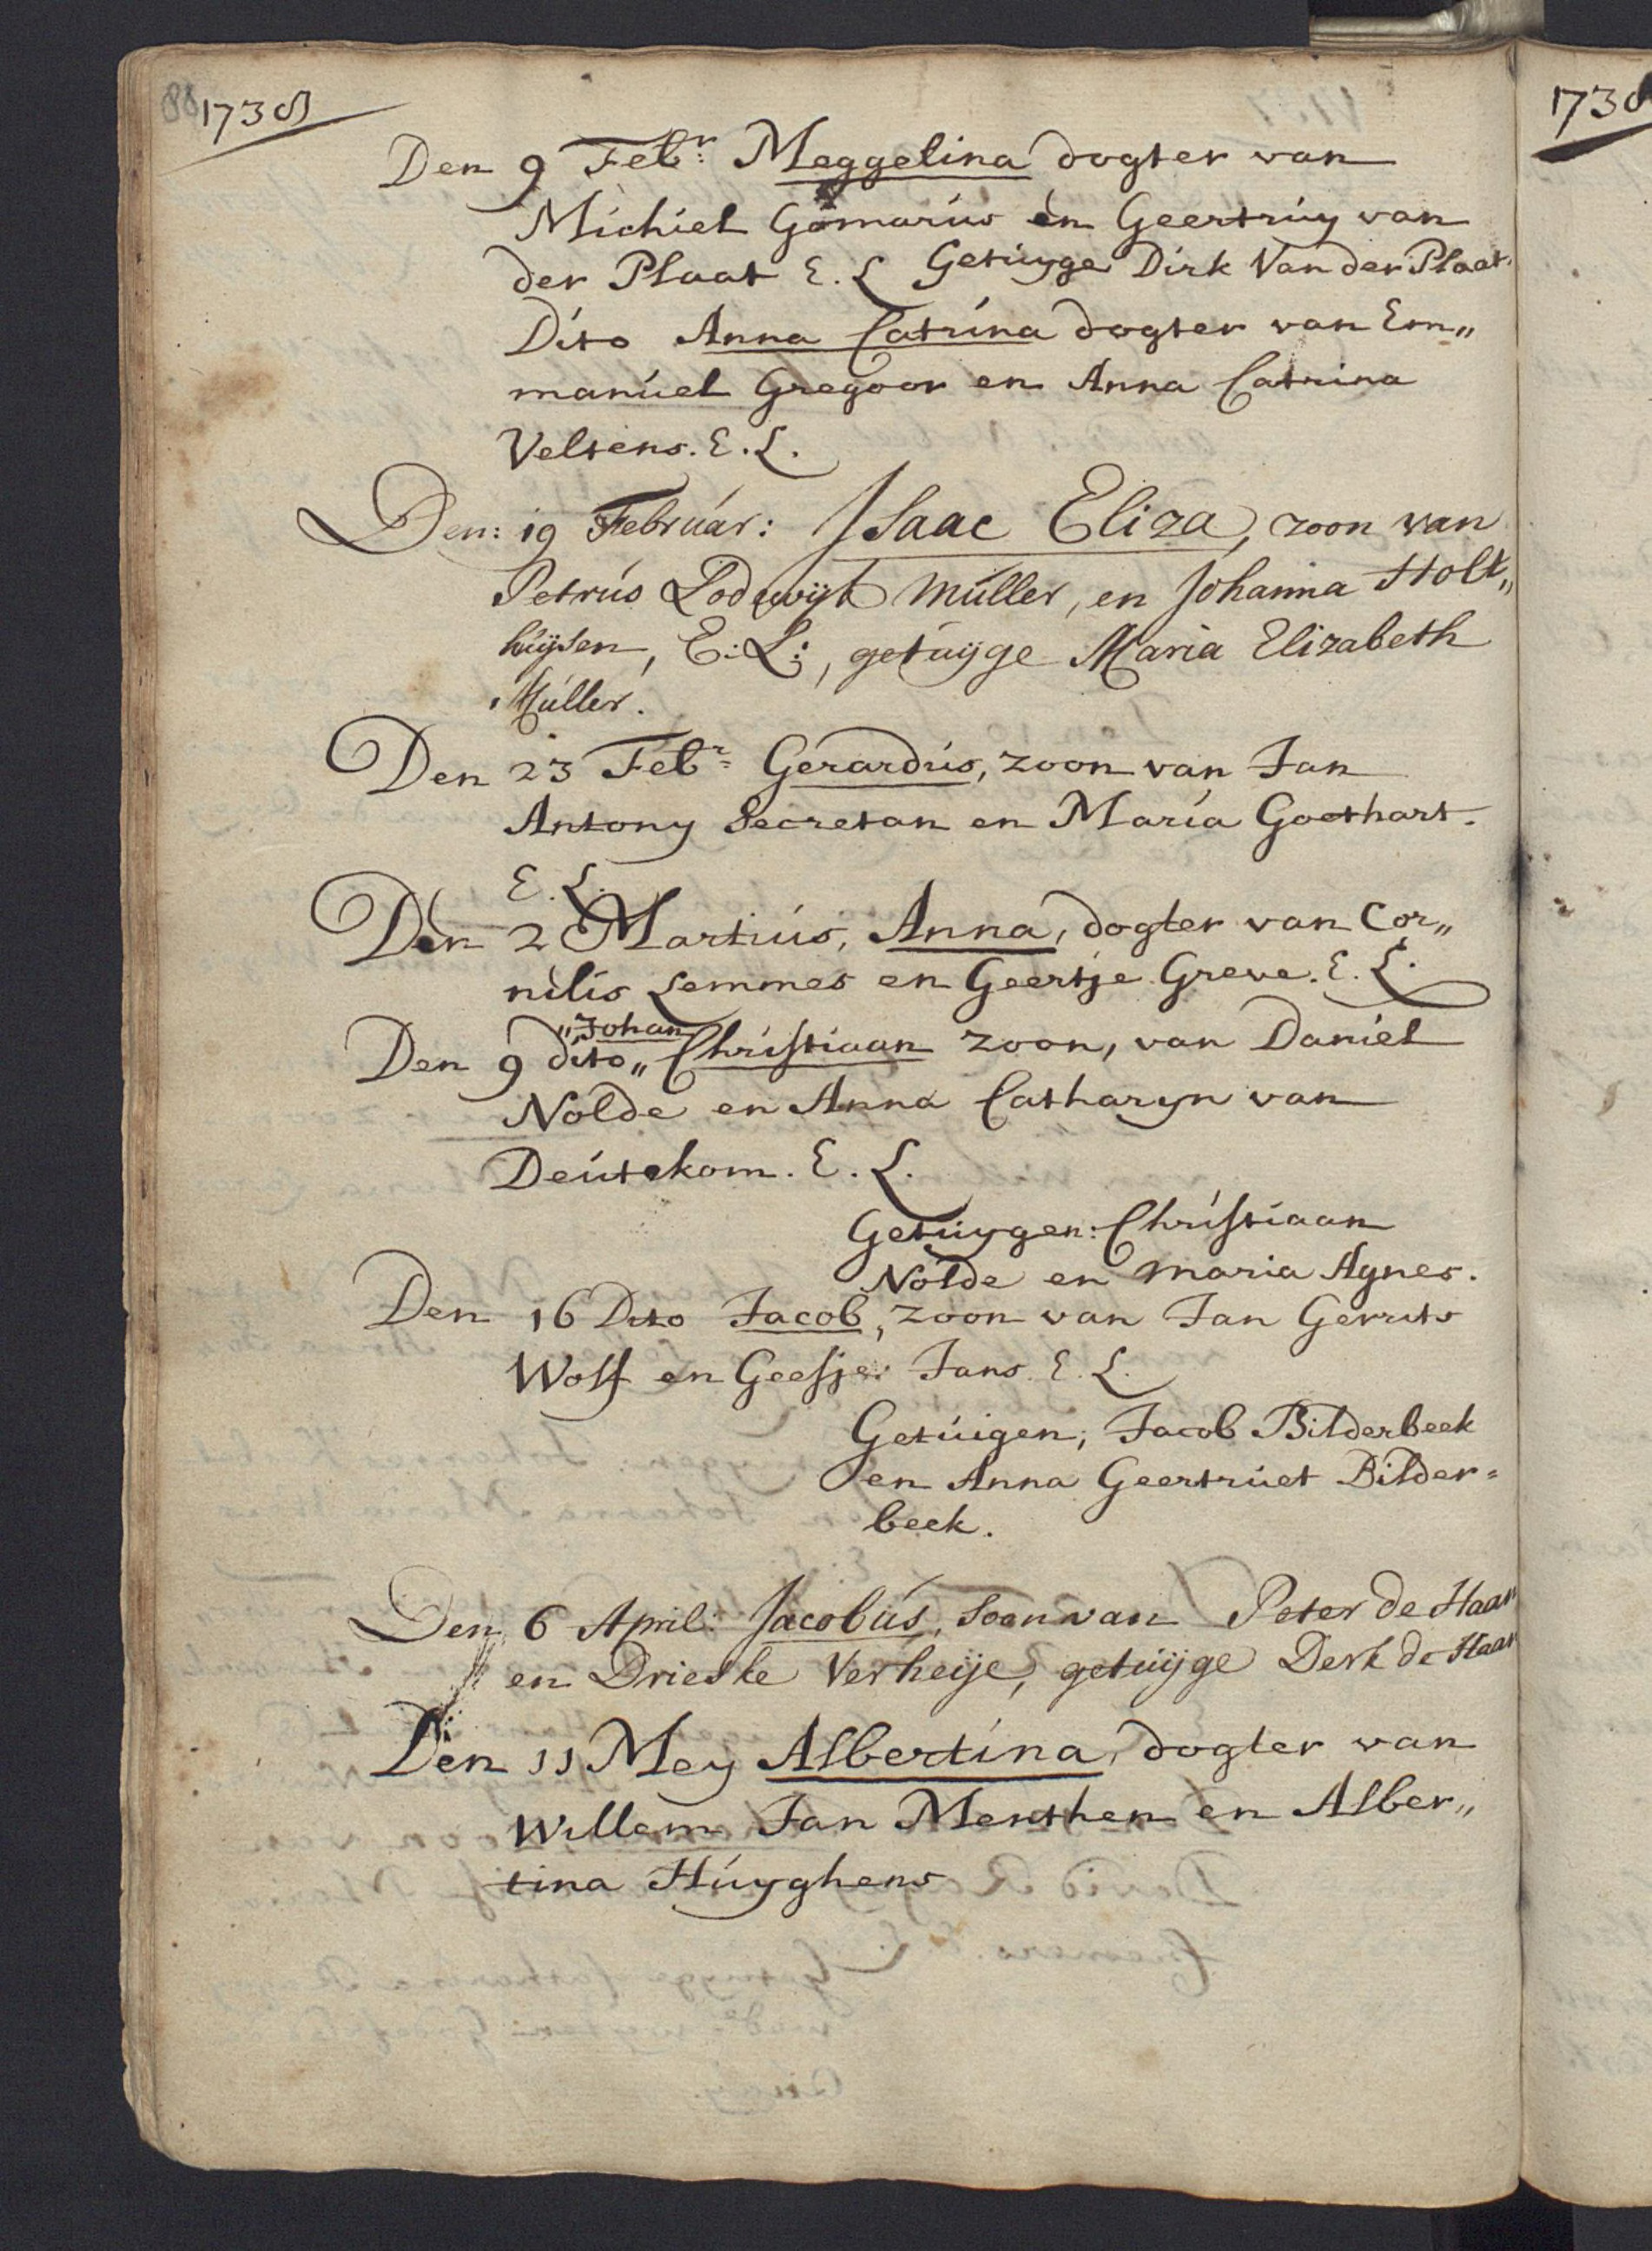 88 1738
Den 9 Febr: Meggelina dogter van
Michiel Gomarus en Geertruy van
der Plaat E. L Getuyge Dirk Van der Plaat.
Dito Anna Catrina dogter van Em„
manuel Gregoor en Anna Catrina
Veltens. E. L.
Den: 19 Februar: Isaac Eliza, zoon van
Petrus Lodewijk Müller, en Johanna Holt„
huijsen, E: L:, getuijge Maria Elizabeth
Müller.
Den 23 Febr= Gerardus, zoon van Jan
Antony Secretan en Maria Goethart.
E. L.
Den 2 Martius, Anna, dogter van Cor„
nilis Lemmes en Geertje Greve. E. L.
„Johan
Den 9 dito„ Christiaan zoon, van Daniel
Nolde en Anna Catharyn van
Deutekom. E. L.
Getuygen: Christiaan
Nolde en Maria Agnes.
Den 16 Dito Jacob, zoon van Jan Gerrits
Wolf en Geesje: Jans. E. L.
Getuigen; Jacob Bilderbeek
en Anna Geertruet Bilder=
beek.
Den 6 April: Jacobus, Soon van Peter de Haan
en Drieske Verheije, getuijge Derk de Haan
Den 11 Mey Albertina, dogter van
Willem Jan Menthen en Alber„
tina Huyghens
173